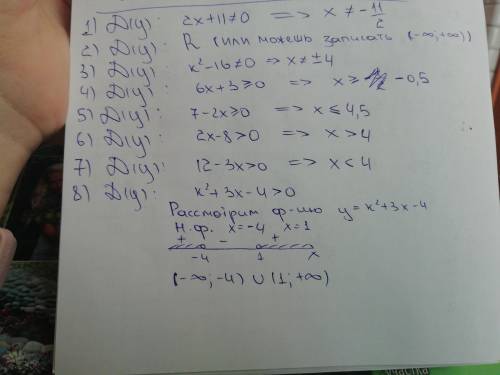 1) D(y): 2x+11≠0 => x ≠ -11/2
2) D(y): R (или можешь записать (-∞;+∞))
3) D(y): x²-16≠0 => x≠±4
4) D(y): 6x+3≥0 => x≥ -0,5
5) D(y): 7-2x≥0 => x≤4,5
6) D(y): 2x-8>0 => x>4
7) D(y): 12-3x>0 => x<4
8) D(y): x²+3x-4>0
Рассмотрим ф-ию y=x²+3x-4
Н.ф. x=-4 x=1
+ - +
-4 1 x
(-∞;-4) ∪ (1;+∞)
участка